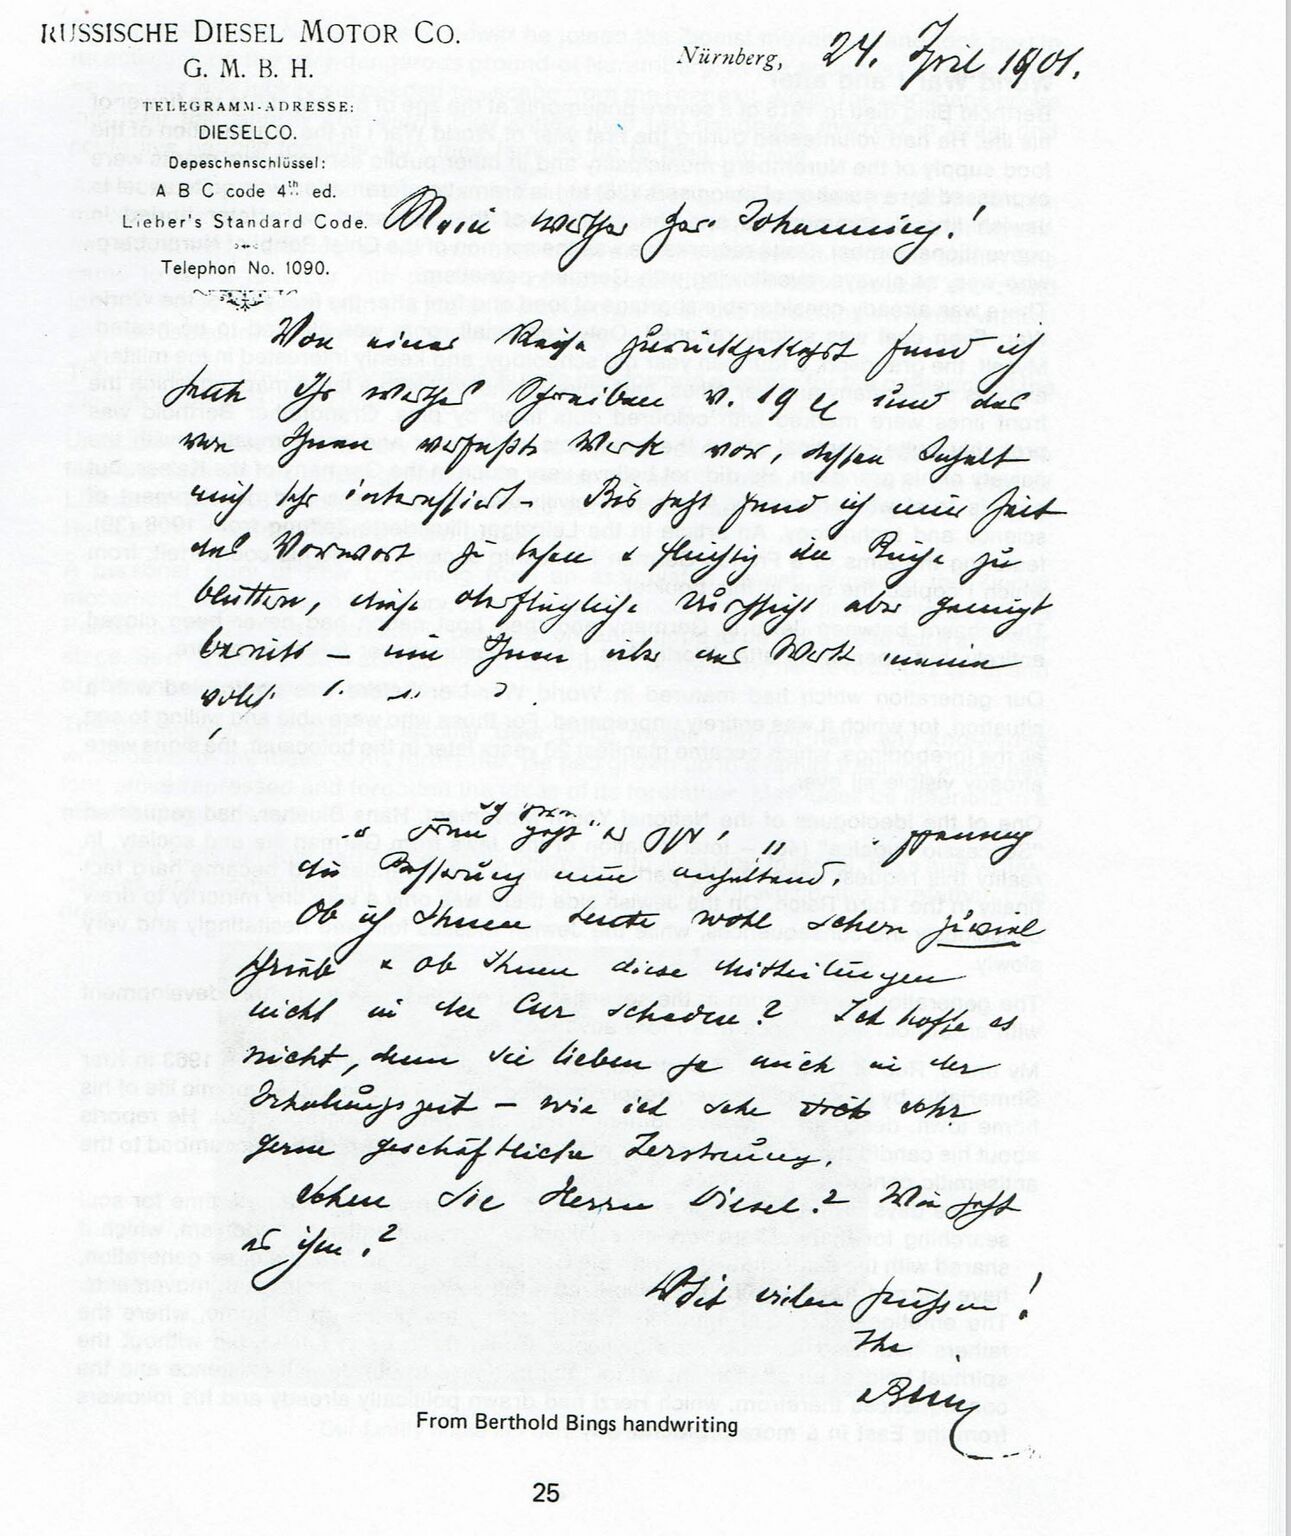 RUSSISCHE DIESEL MOTOR CO.
G. M. B. H.
TELEGRAMM-ADRESSE:
DIESELCO.
Depeschenschlüssel:
A B C code 4th ed.
Lieber's Standard Code.
Telephon No. 1090.
Nürnberg, 24. 1901.
Mein werther Herr Johanning!
Von einer Reise zurückgekehrt fand ich
heute Ihr werthes Schreiben v. 19 und das
von Ihnen verfaßte Werk vor, dessen Inhalt
mich sehr interessiert – Bis jetzt fand ich nur Zeit
das Vorwort zu lesen & flüchtig die Buche zu
blättern, diese oberflächliche Durchsicht aber genügt
bereits – um Ihnen über das Werk meine
die Besserung nun anhaltend.
Ob ich Ihnen heute wohl schon zuviel
schrieb & ob Ihnen diese Mittheilungen
nicht in der Cur schaden? Ich hoffe es
nicht, denn Sie lieben ja auch in der
Erholungszeit – wie ich sehr
gerne geschäftliche Zerstreuung.
Sehen Sie Herrn Diesel? Wie geht
es ihm?
Mit vielen Grüßen!
Ihr
Bing
From Berthold Bings handwriting
25